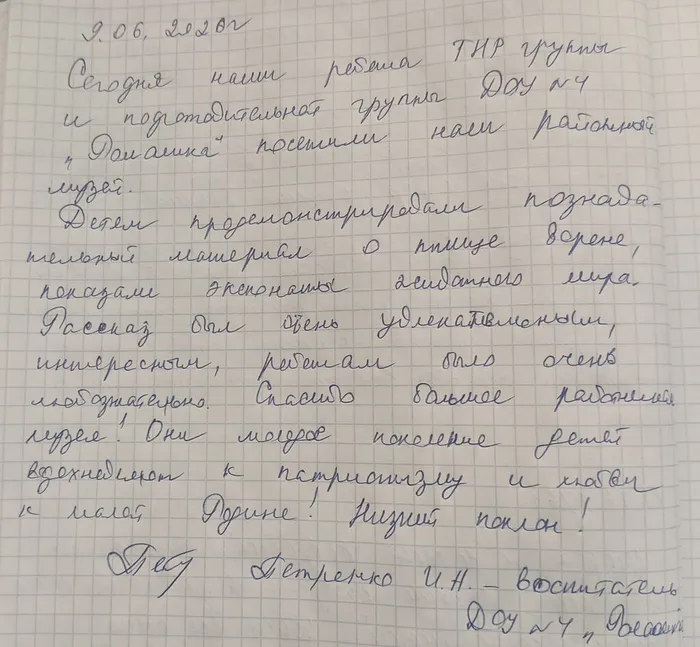 9.06.2026г
Сегодня наши ребята ТНР группы
и подготовительной группы ДОУ №4
„Ромашка" посетили наш районный
музей.
Детям продемонстрировали познава-
тельный материал о птице вороне,
показали экспонаты животного мира.
Рассказ был очень увлекательным,
интересным, ребятам было очень
любознательно. Спасибо большое работникам
музея! Они молодое поколение детей
вдохновляют к патриотизму и любви
к малой Родине! Низкий поклон!
Петренко И.Н. – воспитатель
ДОУ №4 „Ромашка